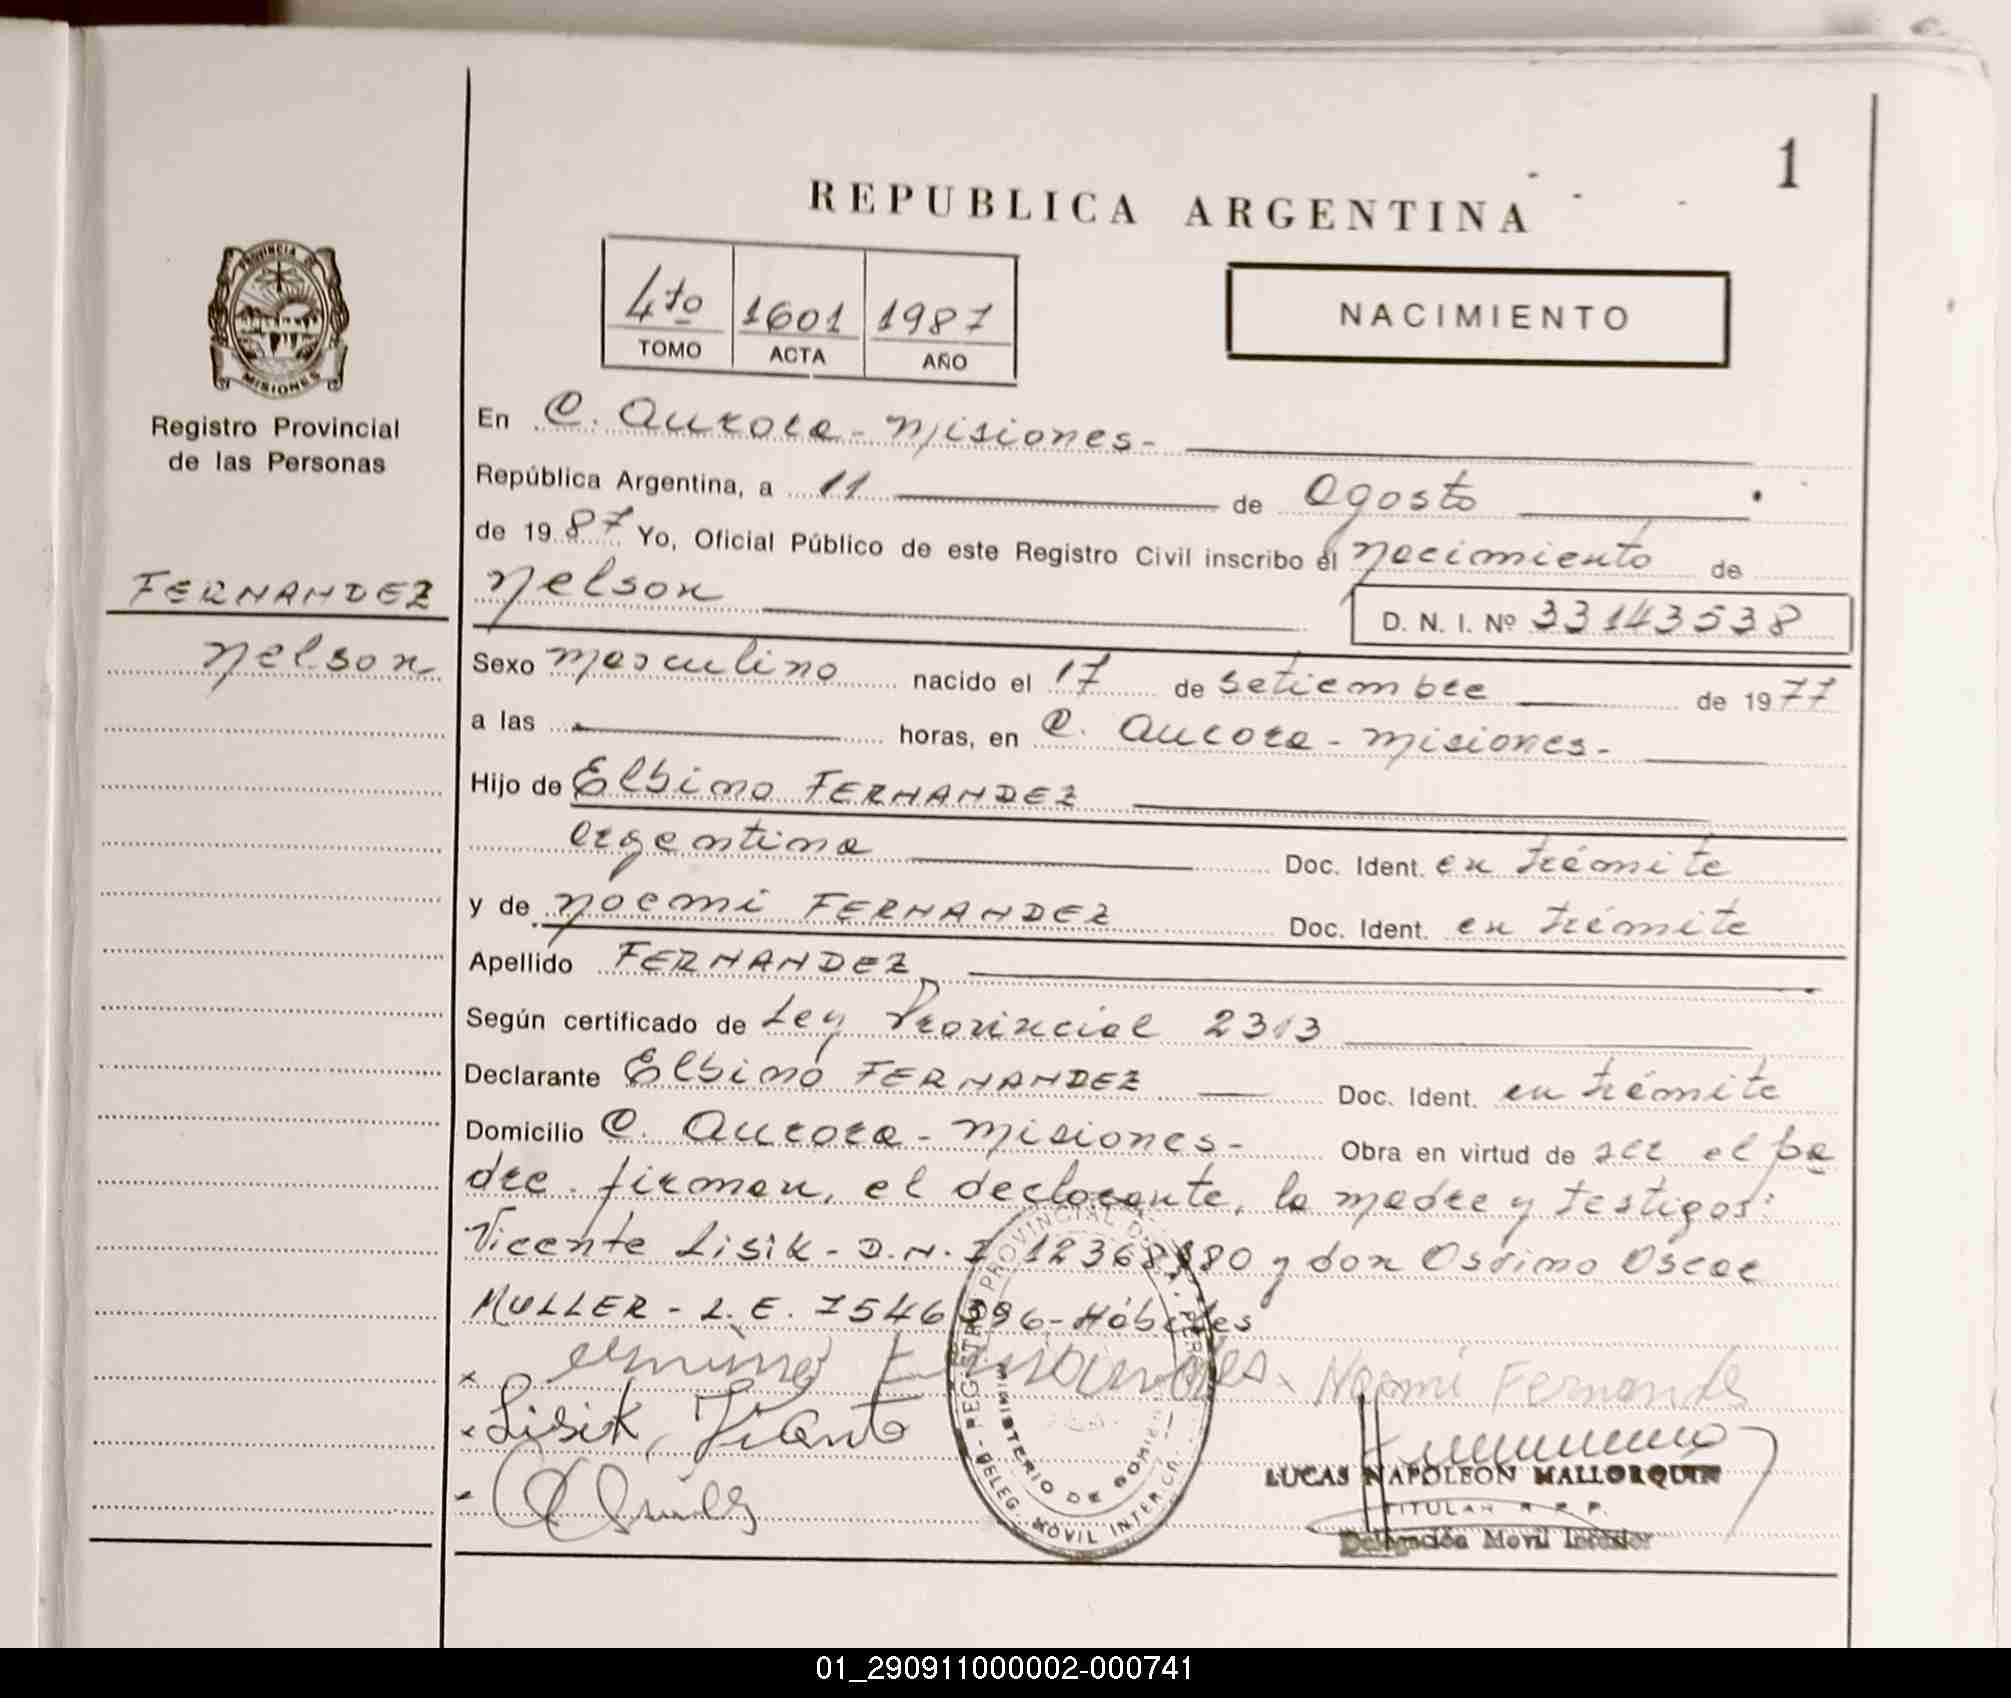 1
REPUBLICA ARGENTINA
4to 1601 1987
TOMO ACTA AÑO
NACIMIENTO
PROVINCIA DE MISIONES
Registro Provincial
de las Personas
FERNANDEZ
Nelson
En C. Aurora - Misiones -
República Argentina, a 11 de Agosto
de 1987 Yo, Oficial Público de este Registro Civil inscribo el nacimiento de
Nelson D. N. I. Nº 33143538
Sexo masculino nacido el 17 de setiembre de 1977
a las horas, en C. Aurora - Misiones -
Hijo de Elbino FERNANDEZ
argentina Doc. Ident. en trámite
y de Noemi FERNANDEZ Doc. Ident. en trámite
Apellido FERNANDEZ
Según certificado de Ley Provincial 2313
Declarante Elbino FERNANDEZ Doc. Ident. en trámite
Domicilio C. Aurora - Misiones - Obra en virtud de ser el pa
dre. firman, el declarante, la madre y testigos:
Vicente Lisik - D.N.I 12368 80 y don Osvino Oscar
MULLER - L.E. 7546396 - Hábiles
Noemi Fernandes
Lisik,
LUCAS NAPOLEON MALLORQUIN
TITULAR R. R. P.
Delegación Movil Interior
REGISTRO PROVINCIAL DE PER
MINISTERIO DE GOBIERNO
DELEG. MOVIL INTERIOR
01_290911000002-000741